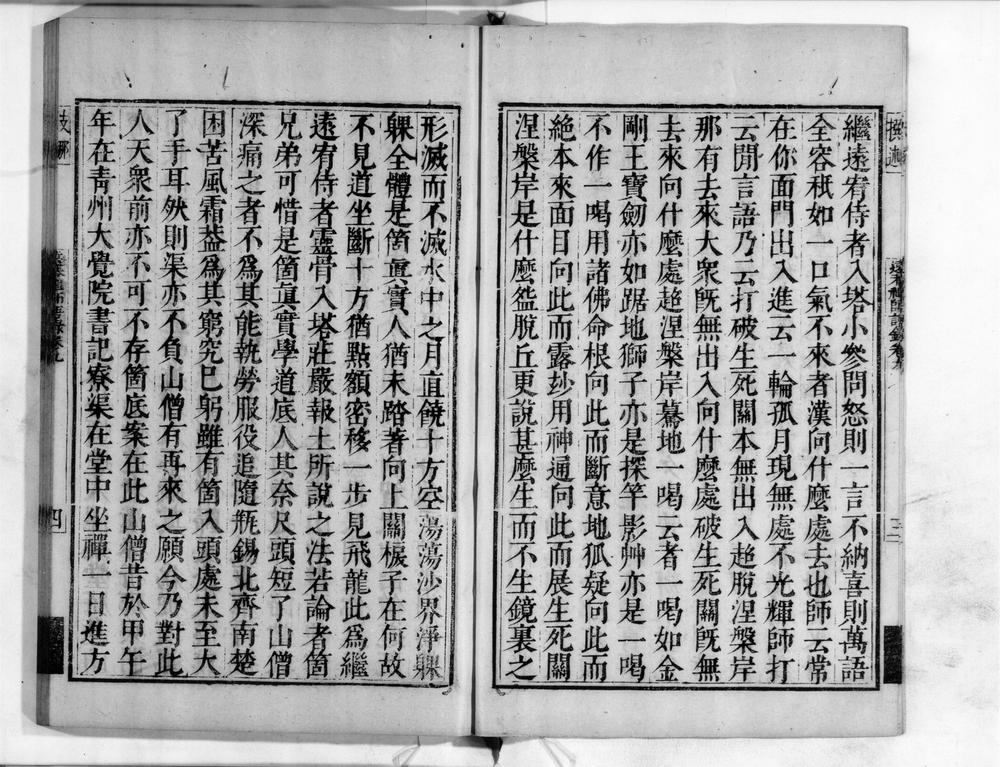 繼遠宥侍者入塔小參問怒則一言不納喜則萬語
全容秖如一口氣不來者漢向什麼處去也師云常
在你面門出入進云一輪孤月現無處不光輝師打
云聞言語乃云打破生死關本無出入超脫涅槃岸
那有去來大衆既無出入向什麼處破生死關既無
去來向什麼處超涅槃岸驀地一喝云者一喝如金
剛王寶劒亦如踞地獅子亦是探竿影艸亦是一喝
不作一喝用諸佛命根向此而斷意地狐疑向此而
絶本來面目向此而露玅用神通向此而展生死關
涅槃岸是什麼盌脫丘更說甚麼生而不生鏡裏之
形滅而不滅水中之月直饒十方空蕩蕩沙界淨躶
躶全體是箇眞實人猶未踏著向上關棙子在何故
不見道坐斷十方猶點額密移一步見飛龍此爲繼
遠宥侍者靈骨入塔莊嚴報土所說之法若論者箇
兄弟可惜是箇眞實學道底人其奈尺頭短了山僧
深痛之者不爲其能執勞服役追隨缾錫北齊南楚
困苦風霜葢爲其窮究巳躬雖有箇入頭處未至大
了手耳然則渠亦不負山僧有再來之願今乃對此
人天衆前亦不可不存箇底案在此山僧昔於甲午
年在青州大覺院書記寮渠在堂中坐禪一日進方
三
四